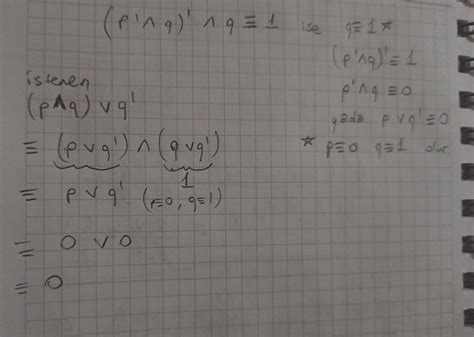 (p'∧q)' ∧ q ≡ 1 ise q≡1 *
(p'∧q)' ≡ 1
p'∧q ≡ 0
yada p∨q' ≡ 0
* p≡0 q≡1 dir
istenen
(p∧q) ∨ q'
≡ (p∨q') ∧ (q∨q')
1
≡ p∨q' (p≡0, q≡1)
≡ 0 ∨ 0
≡ 0